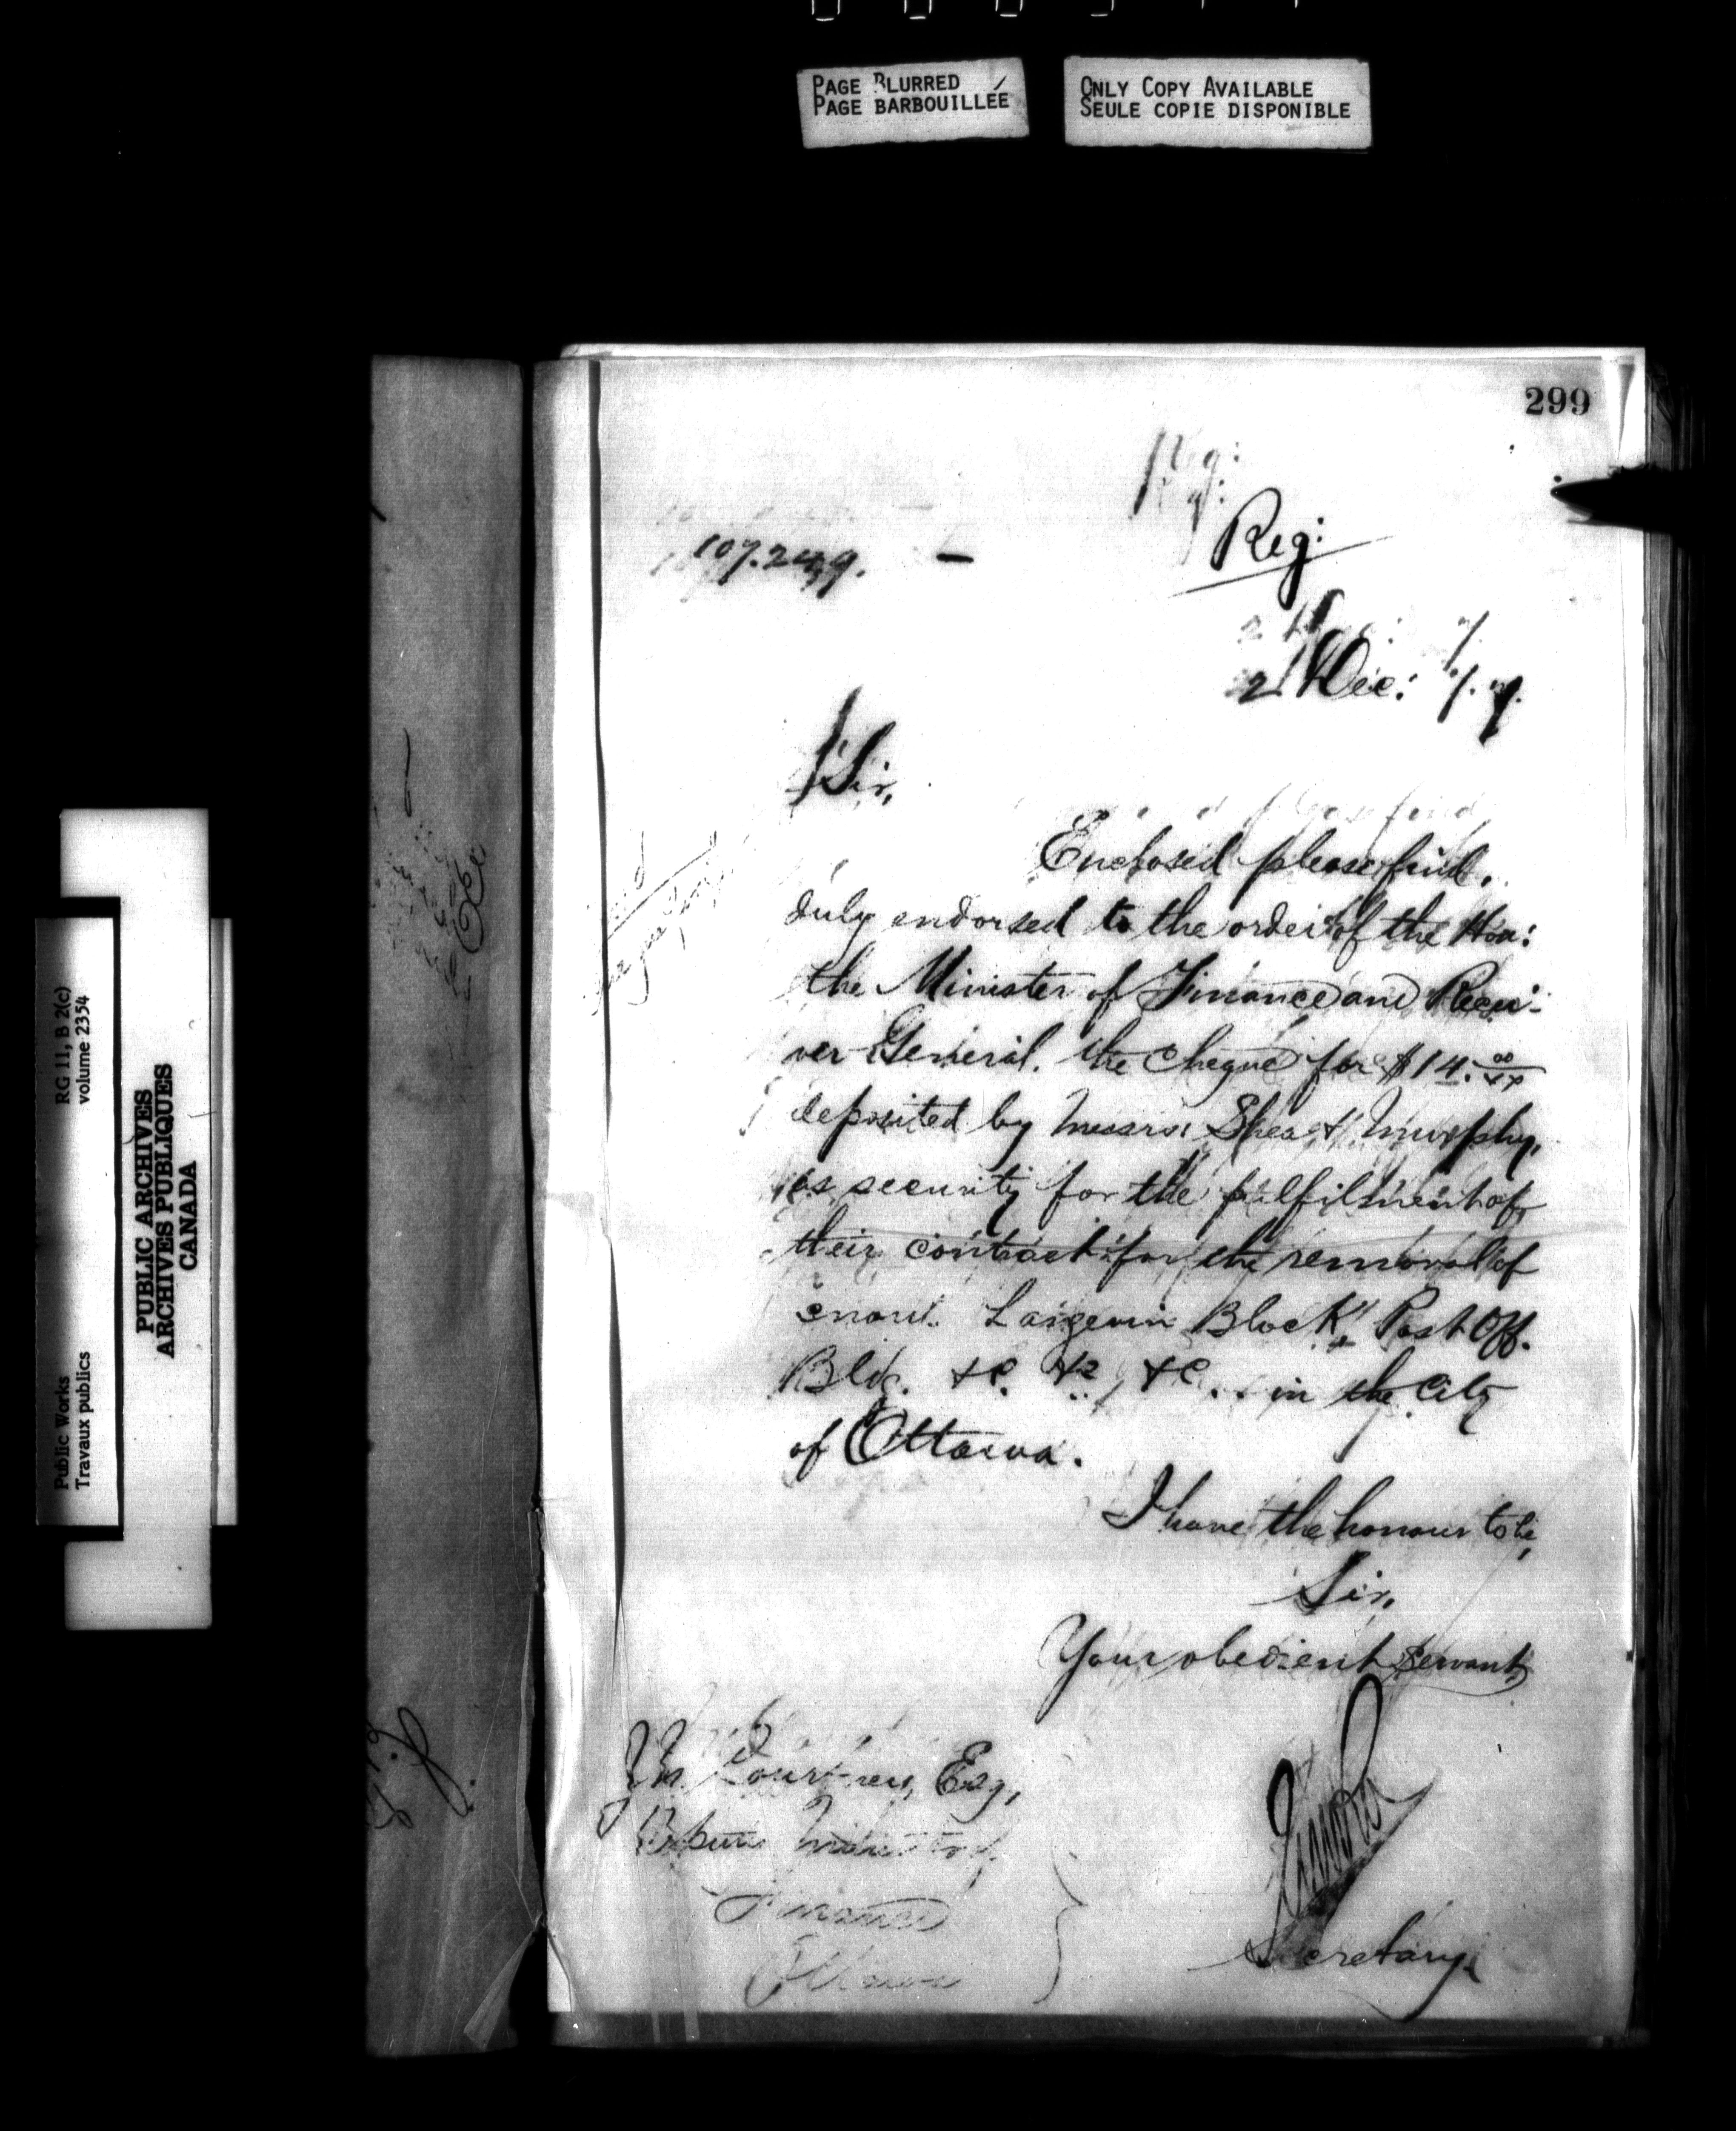 PAGE BLURRED
PAGE BARBOUILLÉE
ONLY COPY AVAILABLE
SEULE COPIE DISPONIBLE
299
Reg:
107.249.
2 Dec:
Sir,
Enclosed please find,
duly endorsed to the order of the Hon:
the Minister of Finance and Recei-
ver General. the cheque for $14.00/xx
deposited by Messrs. Shea & Murphy,
as security for the fulfilment of
their contract for the removal of
snow. Langevin Block, Post Off.
Bldg. &c. &c. &c. in the City
of Ottawa.
I have the honour to be,
Sir,
Your obedient servant,
Courtney, Esq,
Deputy Minister of
Finance
Ottawa
Secretary.
Public Works
Travaux publics
RG 11, B 2(c)
volume 2354
PUBLIC ARCHIVES
ARCHIVES PUBLIQUES
CANADA